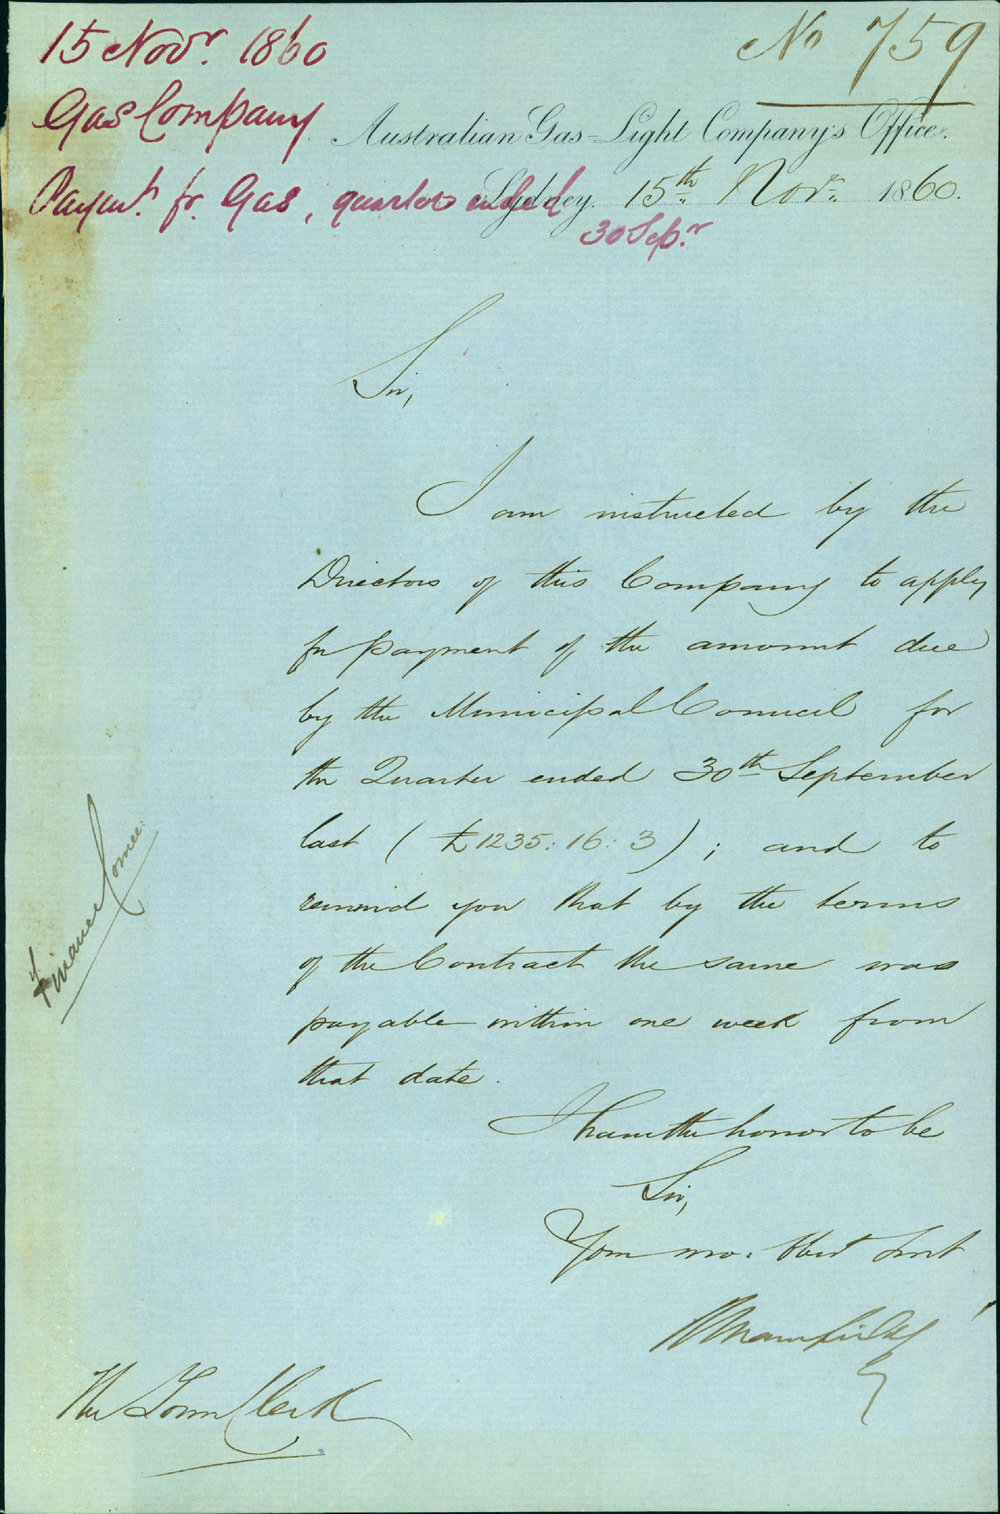 15 Novr. 1860
No 759
Gas Company
Australian Gas-Light Company's Office.
Paymt. fr. Gas, quarter ended
30 Sepr.
Sydney. 15th Novr. 1860.
Sir,
I am instructed by the
Directors of this Company to apply
for payment of the amount due
by the Municipal Council for
the Quarter ended 30th September
last (£1235:16:3); and to
remind you that by the terms
of the Contract the same was
payable within one week from
that date.
Finance Comee:
I have the honor to be
Sir,
Your mo: Obed Servt
Mansfield
The Town Clerk